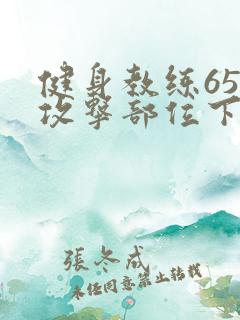 健身教练65
攻撃部位下
張冬成
未任同意禁止转载